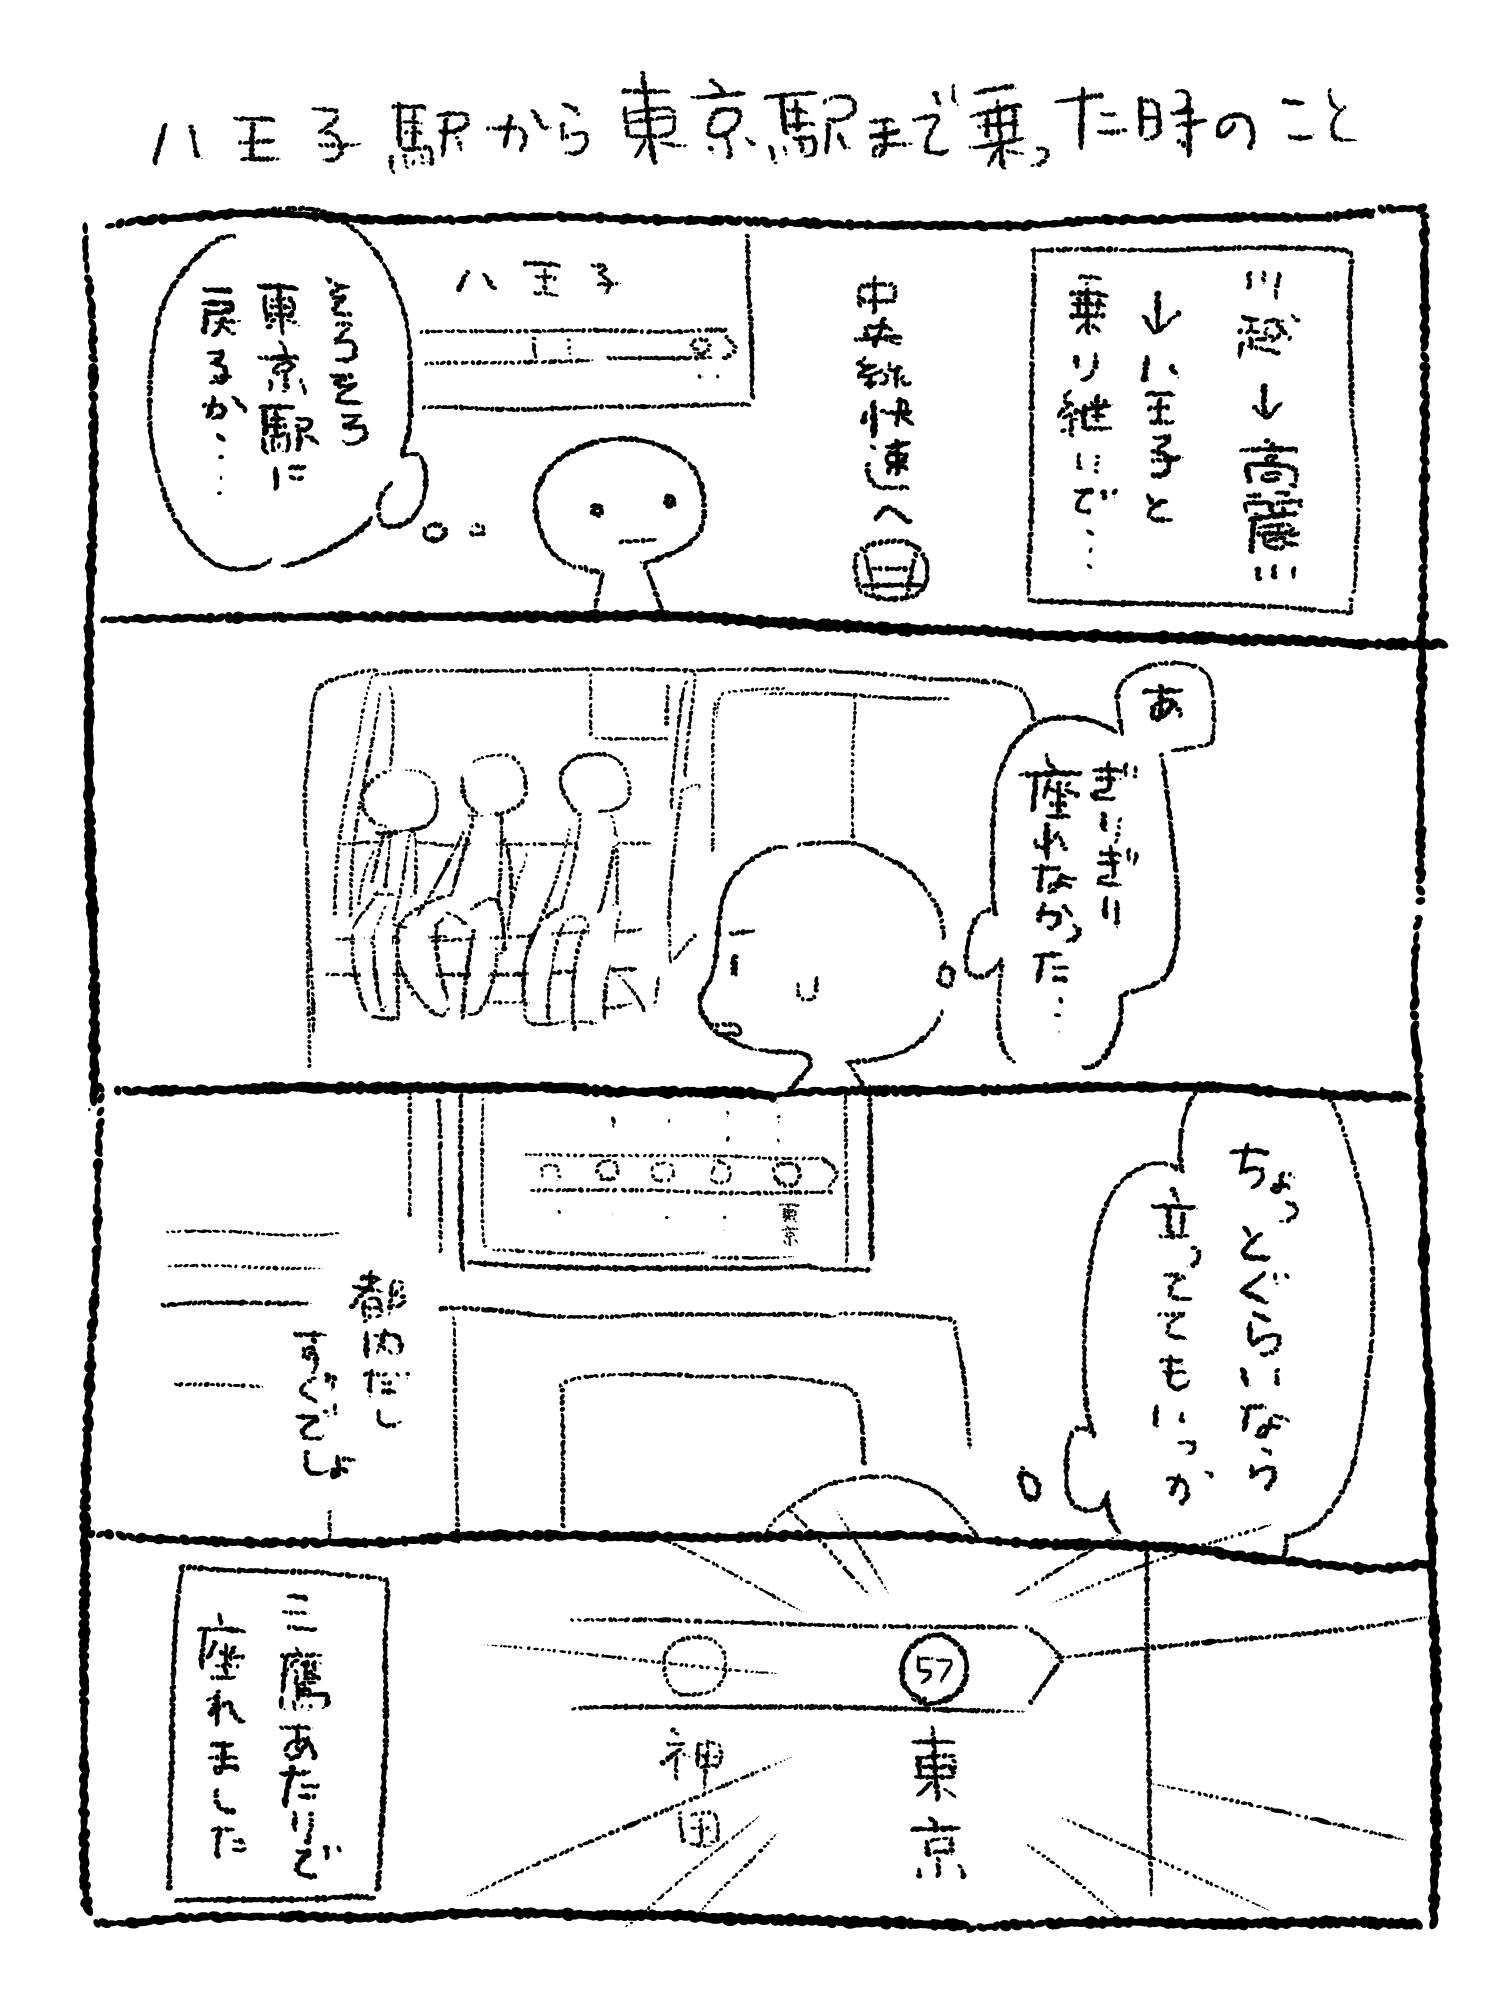 八王子駅から東京駅まで乗った時のこと
川越→高麗川
→八王子と
乗り継いで…
中央線快速へ
八王子
そろそろ
東京駅に
戻るか…
あ
ぎりぎり
座れなかった…
ちょっとぐらいなら
立っててもいっか
東京
都内だし
すぐでしょ
57
東京
神田
三鷹あたりで
座れました